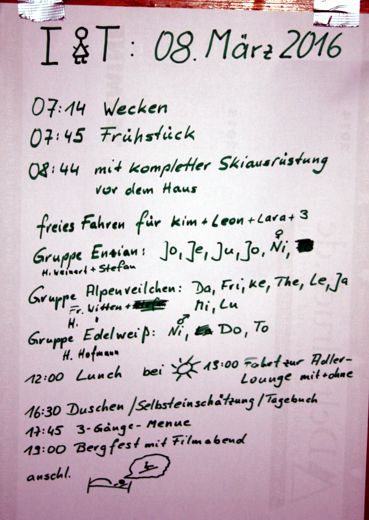 I & T: 08. März 2016
07:14 Wecken
07:45 Frühstück
08:44 mit kompletter Skiausrüstung
vor dem Haus
freies Fahren für Kim + Leon + Lara + 3
Gruppe Enzian: Jo, Je, Ju, Jo, Ni ♀,
H. Weinert + Stefan
Gruppe Alpenveilchen: Da, Fri, Ke, The, Le, Ja
Fr. Witten + Mi, Lu
H. "
Gruppe Edelweiß: Ni ♂, Do, To
H. Hofmann
12:00 Lunch bei 13:00 Fahrt zur Adler-
Lounge mit + ohne
16:30 Duschen/Selbsteinschätzung/Tagebuch
17:45 3-Gänge-Menue
19:00 Bergfest mit Filmabend
anschl.